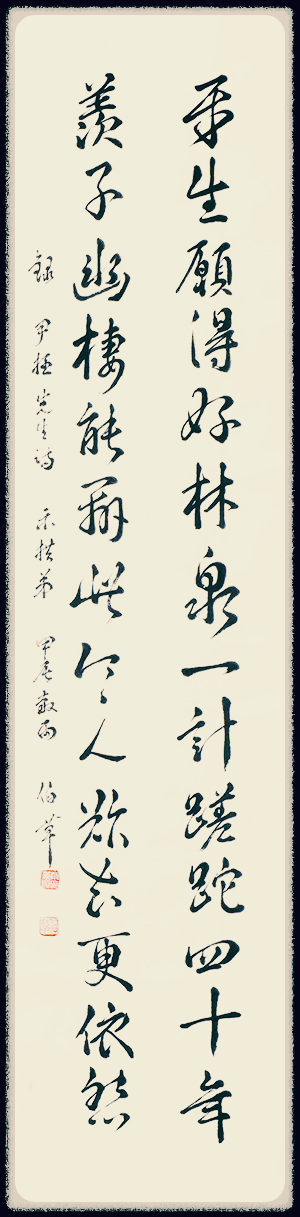 平生願得好林泉一計蹉跎四十年
羨子幽棲能辦此令人欲去更依然
錄 尹拯先生詩 示拱弟 甲辰穀雨